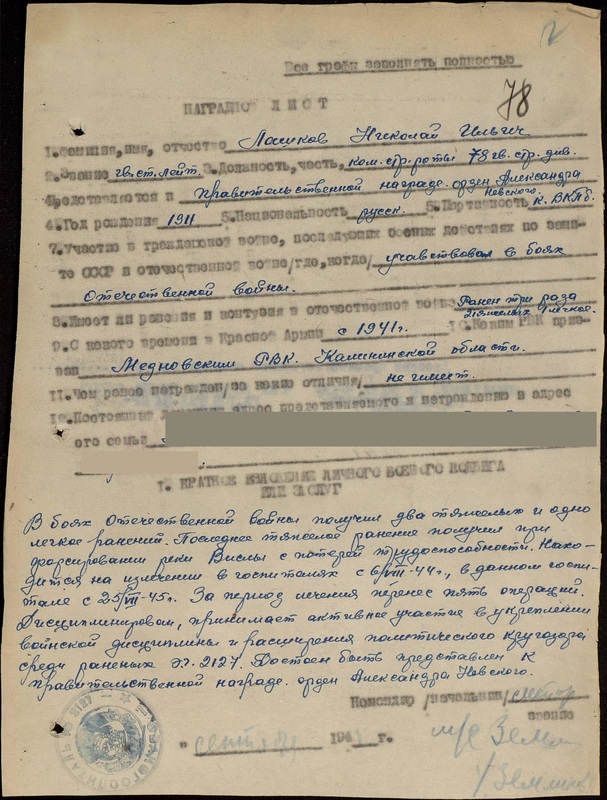 Все графы заполнять полностью
78
НАГРАДНОЙ ЛИСТ
1. Фамилия, имя, отчество Лашков Николай Ильич
2. Звание гв.ст.лейт. 3. Должность, часть, ком.стр.роты 78 гв.стр.див.
4. Представляется к правительственной награде. орден Александра Невского.
4. Год рождения 1911 5. Национальность русск. 6. Партийность к. ВКПб.
7. Участие в гражданской войне, последующих боевых действиях по защи-
те СССР и отечественной войне /где, когда/ учавствовал в боях
Отечественной войны.
8. Имеет ли ранения и контузии в отечественной войне Ранен три раза
2тяжелых 1 легкое.
9. С какого времени в Красной Армии с 1941г. 10. Каким РВК приз-
ван Медновским РВК. Калининской области.
11. Чем ранее награжден /за какие отличия/ не имеет.
12. Постоянный домашний адрес представляемого к награждению и адрес
его семьи
1. КРАТКОЕ ИЗЛОЖЕНИЕ ЛИЧНОГО БОЕВОГО ПОДВИГА
ИЛИ ЗАСЛУГ
В боях Отечественной войны получил два тяжелых и одно
легкое ранений. Последнее тяжелое ранение получил при
форсировании реки Вислы с потерей трудоспособности. Нахо-
дится на излечении в госпиталях с 6/VIII-44г., в данном госпи-
тале с 25/VII-45г. За период лечения перенес пять операций.
Дисциплинирован, принимает активное участие в укреплении
войнской дисциплины и расширения политического кругозора
среди раненых э.г. 2127. Достоен быть представлен к
правительственной награде. орден Александра Невского.
Командир /начальник/
звание
" сентября 194 г.
м/с